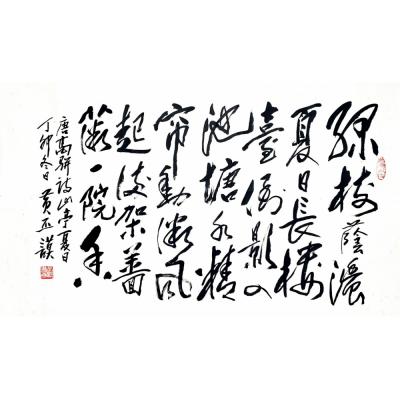 綠树蔭濃
夏日長樓
臺倒影入
池塘水精
帘動微风
起滿架薔
薇一院香
唐高駢詩山亭夏日
丁卯冬日黄丕謨